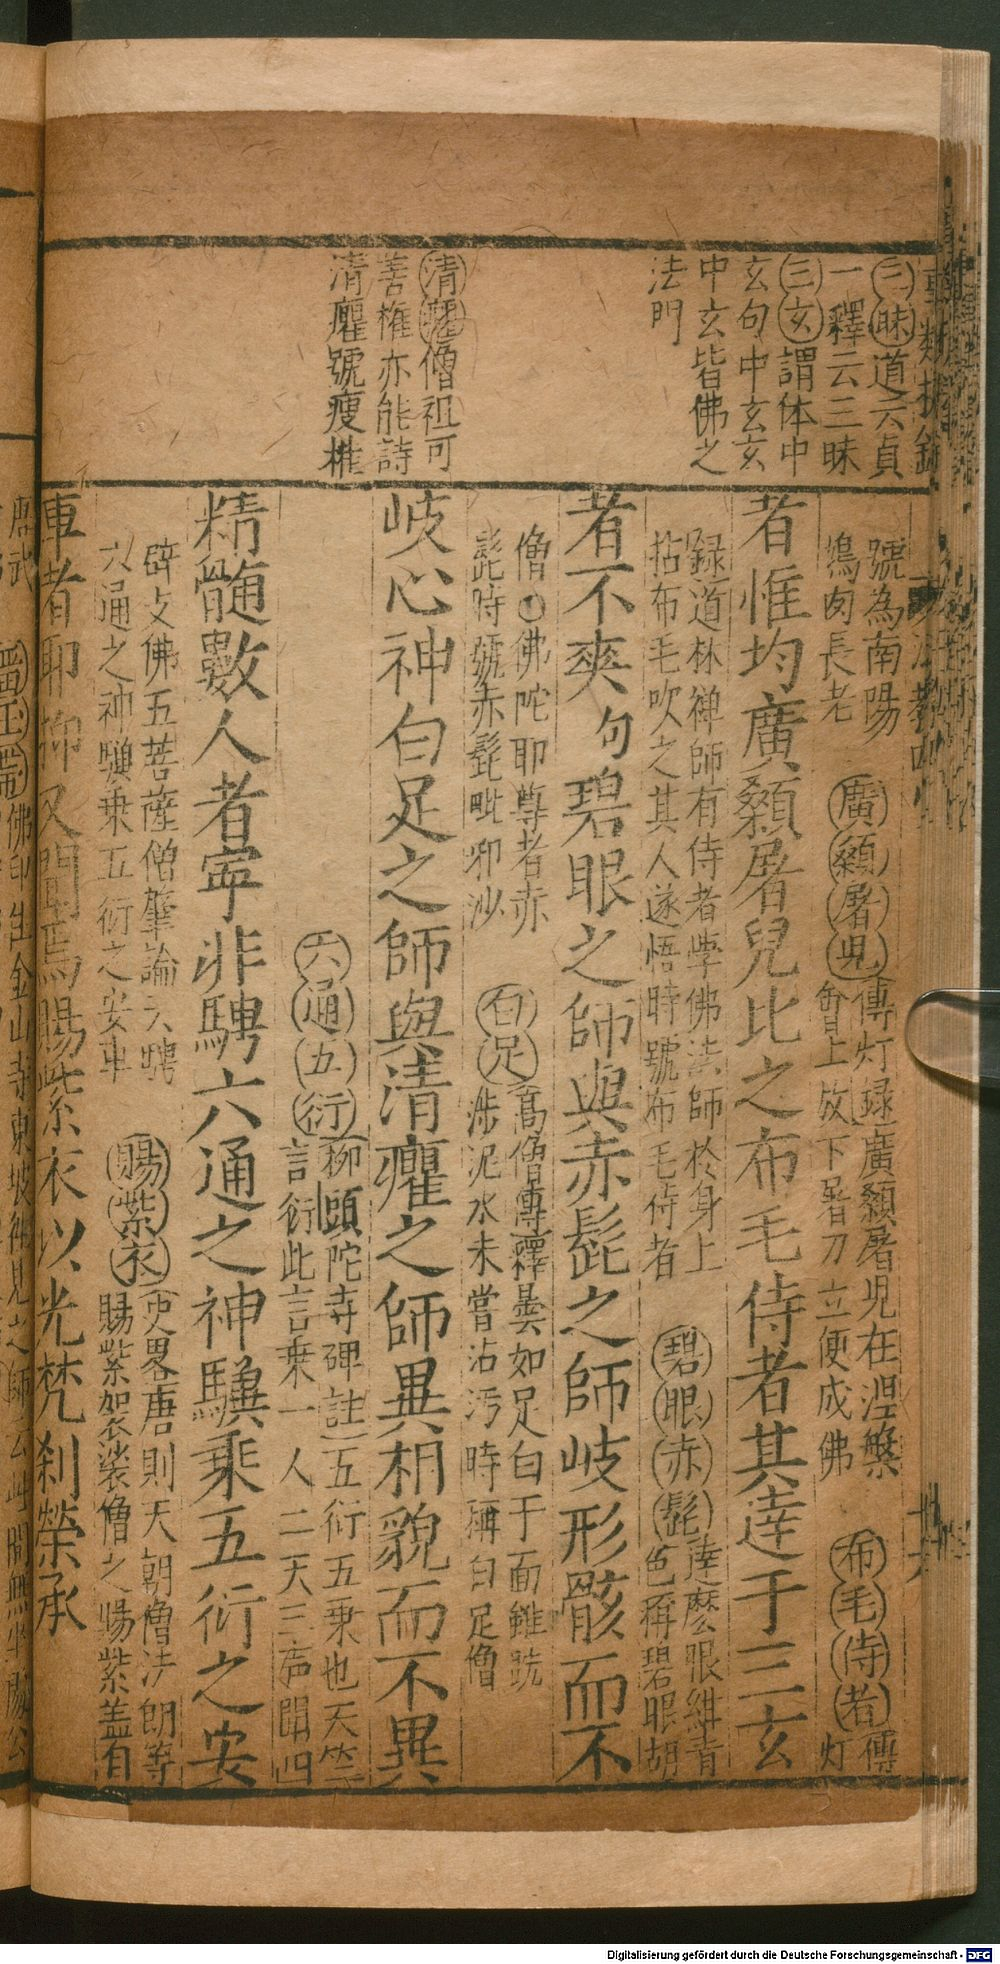 三昧道六貞
一釋云三昧
三玄謂体中
玄句中玄玄
中玄皆佛之
法門
清癯僧祖可
善權亦能詩
清癯號瘦權
號為南陽
鴆肉長老
廣額屠児傳灯録廣額屠児在涅槃
㑹上放下屠刀立便成佛
布毛侍者傳
灯
者惟均廣額屠兒比之布毛侍者其達于三玄
録道林禅師有侍者學佛法師於身上
拈布毛吹之其人遂悟時號布毛侍者
碧眼赤髭達麽眼紺青
色稱碧眼胡
者不爽句碧眼之師與赤髭之師岐形骸而不
僧佛陀耶尊者赤
髭時號赤髭毗耶沙
白足高僧傳釋曇如足白于面雖跣
涉泥水未嘗沾污時稱白足僧
岐心神白足之師與清癯之師異相貌而不異
六通五衍柳頭陀寺碑註五衍五乗也天竺
言衍此言乗一人二天三声聞四
精髄數人者寧非騁六通之神驥乗五衍之安
辟支佛五菩薩僧肇論
六通之神驥乗五衍之安車
賜紫衣史畧唐則天朝僧法朗等
賜紫袈裟僧之賜紫盖有
車者耶抑又聞焉賜紫衣以光梵刹榮承
佛印住金山寺東坡
Digitalisierung gefördert durch die Deutsche Forschungsgemeinschaft - DFG